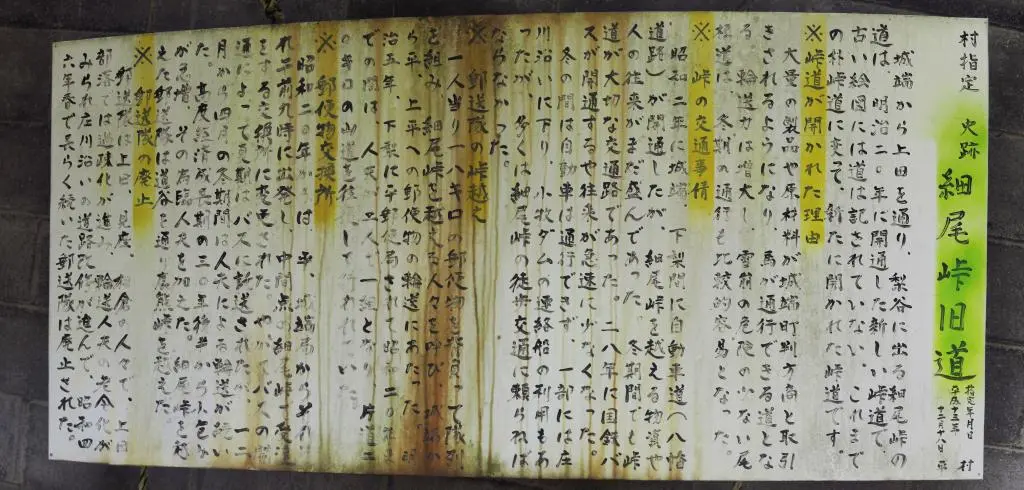 村指定 史跡 細尾峠旧道
指定年月日
平成十三年
十二月十八日
平 村
城端から上田を通り、梨谷に出る細尾峠の
道は、明治二〇年に開通した新しい峠道で、
古い絵図には道は記されていない。これまで
の朴峠道に変って、新たに開かれた峠道です。
※ 峠道が開かれた理由
大量の製品や原材料が城端町判方商と取引
きされるようになり、馬が通行できる道とな
る、輸送力は増大し、雪崩の危険の少ない尾
根道は、冬期の通行も比較的容易となった。
※ 峠の交通事情
昭和二年に城端、下梨間に自動車道(八恰
道路)が開通したが、細尾峠を越える物資や
人の往来がまだ盛んであった。冬期間でも峠
道が大切な交通路であった。二八年に国鉄バ
スが開通するや往来が急速に少なくなった。
冬の間は自動車は通行できず、一部には庄
川沿いに下り、小牧ダムの連絡船の利用もあ
ったが、多くは細尾峠の徒歩交通に頼らねば
ならなかった。
※ 郵送隊の峠越え
一人当り一八キロの郵便物を背負って隊列
を組み、細尾峠を越える人々を呼び、城端か
ら平、上平への郵便物の輸送にあたった。明
治五年、下梨に
での間は、人夫が二人で一組となり、片道二
キロの山道を往復して行われていた。
※ 郵便物交換所
昭和二〇年からは、平、城端両
れ午前九時に出発し、中間点の細尾峠で受渡
をする交換所に変更された。やがてバスの開
通によって夏期はバスに郵送されたが、一二
月から四月の冬期間は人夫による輸送が続い
た。高度経済成長期の三〇年後半から小包み
が急増、その為臨人夫を加えた。細尾峠を越
えた郵送隊は道谷を通り鷹熊峠を越えた。
※ 郵送隊の廃止
郵送隊は上田、見座、相倉の人々で、上田
部落では過疎化が進み、輸送人夫の老令化が
みられ庄川沿いの道路改修が進んで、昭和四
六年春で長らく続いた郵送隊は廃止された。